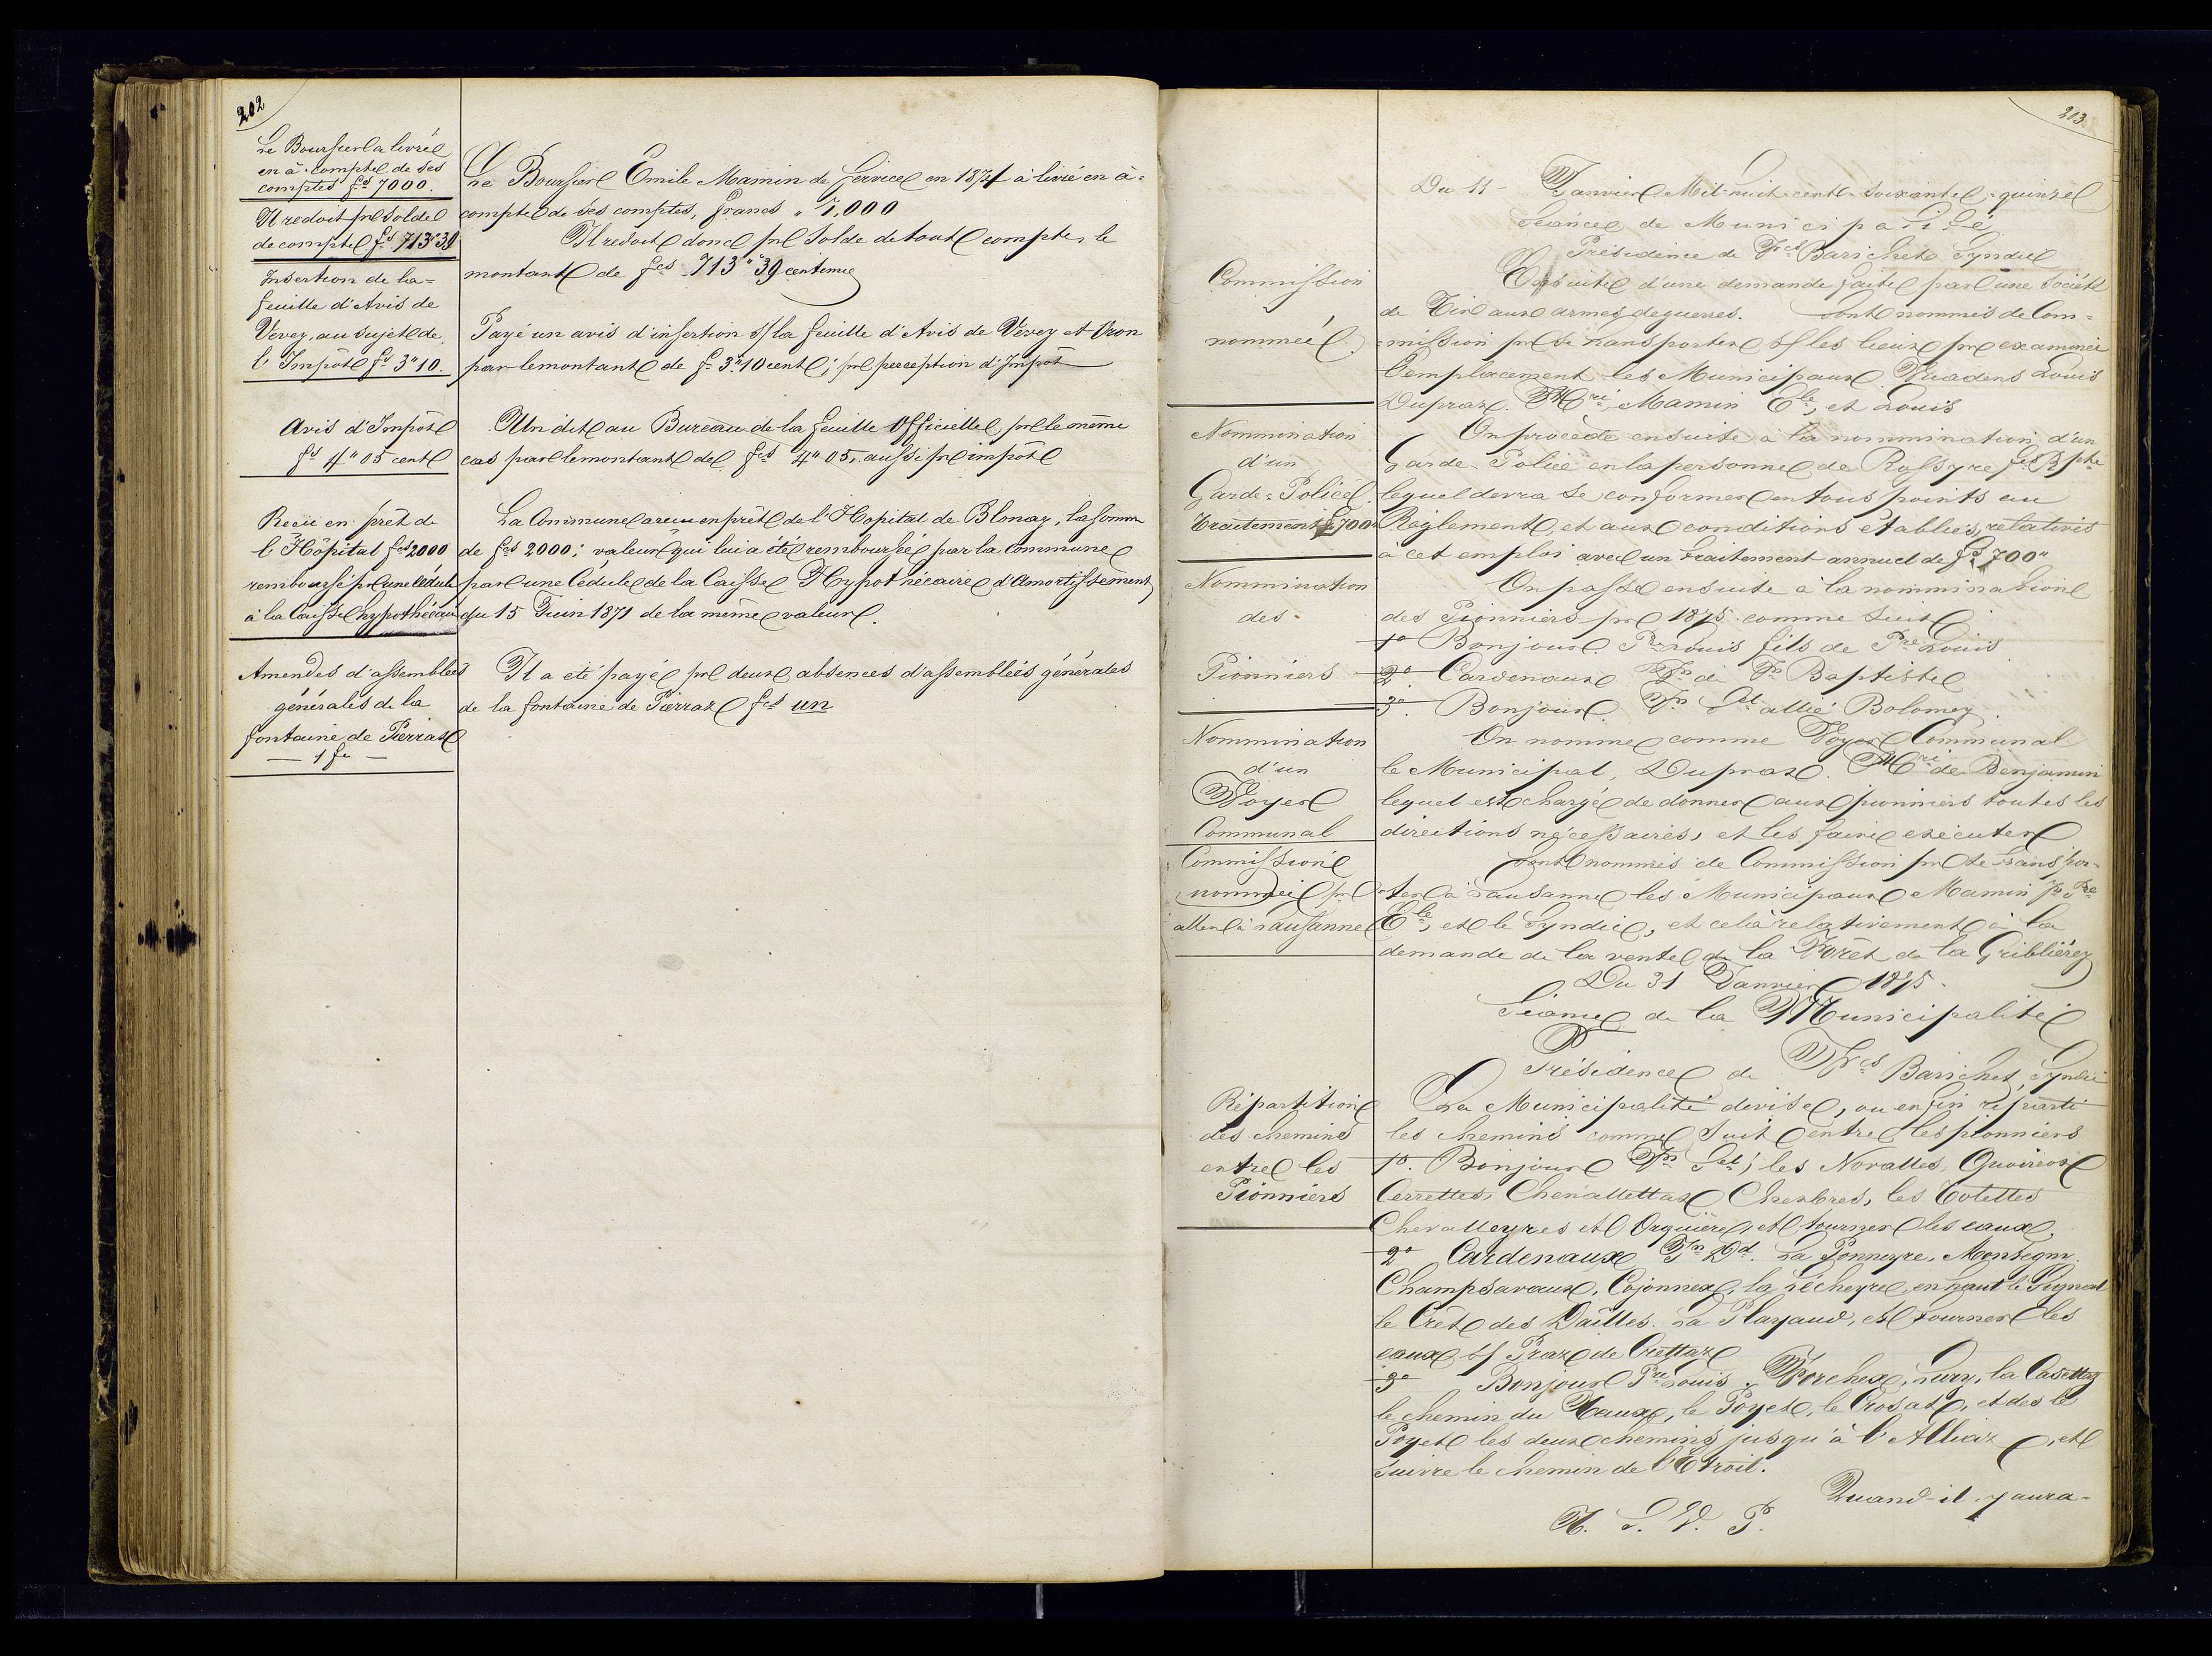 202
Le Boursier a livré
en à-compte de ses
comptes fcs 7000.
Il redoit pr solde
de compte fcs 713"39
Insertion de la=
feuille d'Avis de
Vevey, au sujet de
l'Impôt fs 3"10.
Avis d'Impôt
fs 4"05 cent
Reçu en prêt de
l'Hôpital fcs 2000
remboursé pr une Cédule
à la Caisse hypothécaire
Amendes d'assemblées
générales de la
fontaine de Pierraz
— 1 fr —
Le Boursier Emile Mamin de service en 1874 à livré en à=
compte de ses comptes, francs " 7,000
Il redoit donc pr solde de tout compte, le
montant de fcs 713"39 centimes
Payé un avis d'insertion s/ la feuille d'Avis de Vevey et Oron
par le montant de fs 3"10 cent; pr perception d'Impôt
Un dit au Bureau de la feuille Officielle pr le même
cas par le montant de fcs 4"05, aussi pr impôt
La Commune a reçu en prêt de l'Hopital de Blonay, la somme
de fcs 2000; valeur qui lui a été remboursée par la commune
par une Cédule de la Caisse Hypothécaire d'Amortissement
du 15 Juin 1871 de la même valeur.
Il a été payé pr deux absences d'assemblées générales
de la fontaine de Pierraz fcs un
203
Commission
nommée
Nommination
d'un
Garde=Police
Traitement fs 700
Nommination
des
Pionniers
Nommination
d'un
Voyer
Communal
Commission
nommée pr
aller à Lausanne
Répartition
des chemins
entre les
Pionniers
Du 11 Janvier Mil-huit-cent-soixante-quinze
Séance de Municipalité
Présidence de Frcs Barichet Syndic
Ensuite d'une demande faite par une Société
de Tir aux armes de guerres. Sont nommés de Com=
=mission pr se transporter s/ les lieux pr examiner
l'emplacement les Municipaux Vuadens Louis
Dupraz Mce Mamin Ele, et Louis
On procède ensuite à la nommination d'un
Garde-Police en la personne de Rossyre Bpte
lequel devra se conformer en tous points au
Règlement et aux conditions établies, relatives
à cet emploi avec un traitement annuel de fs 700"
On passe ensuite à la nommination
des Pionniers pr 1875 comme suit
1o Bonjour Pre Louis fils de Pre Louis
2o Cardenaux Jn de Jn Baptiste
3o Bonjour Jn Sl allié Bolomey
On nomme comme Voyer Communal
le Municipal, Dupraz Mce de Benjamin
lequel est chargé de donner aux pionniers toutes les
directions nécessaires, et les faire exécuter
Sont nommés de Commission pr se transpor=
=ter à Lausanne les Municipaux Mamin
Ele, et le Syndic, et celà relativement à la
demande de la vente de la Forêt de la Griblièrez
Du 31 Janvier 1875.
Séance de la Municipalité
Présidence de Frcs Barichet, Syndic
La Municipalité divise, ou enfin réparti
les chemins comme suit entre les pionniers
1o. Bonjour Jn Sl; les Novalles, Quoireox
Cerrettes, Chenallettaz Chenbres, les Tolettes
Chevalleyres et Orguière, et tourner les eaux,
2o Cardenaux Jn Dd. La Ponneyre, Montegny
Champsavaux, Cojonnex, la Lécheyre, en haut le Signal
le Crêt des Dailles. La Playaud, et tourner les
eaux s/ Praz de Crettaz
3o Bonjour Pre Louis. Porchex, Sury, la Casettaz
le chemin du Vaux, le Poyet, le Crosat, et des le
Poyet les deux chemins jusqu'à l'Alliaz, et
suivre le chemin de l'Etroit.
Quand-il-y aura-
T. S. V. P.